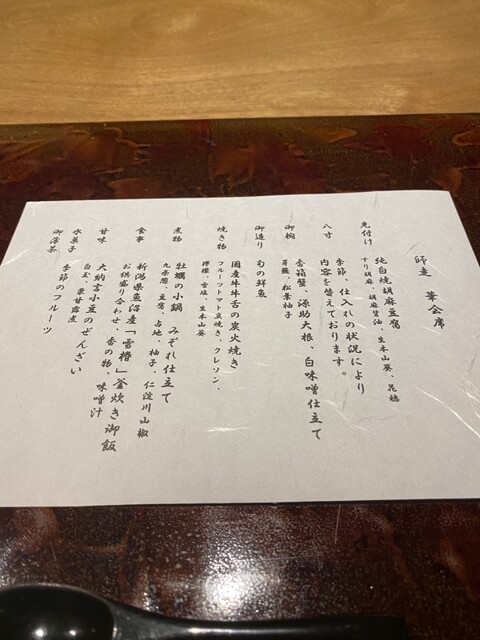 師走 華会席
先付け
純白焼胡麻豆腐
すり胡麻、胡麻醤油、生本山葵、花穂
八寸
季節、仕入れの状況により
内容を替えております。
御椀
香箱蟹、源助大根、白味噌仕立て
芽蕪、松葉柚子
御造り
旬の鮮魚
焼き物
国産牛牛舌の炭火焼き
フルーツトマト炭焼き、クレソン、
檸檬、雪塩、生本山葵
煮物
牡蠣の小鍋 みぞれ仕立て
九条葱、豆腐、占地、柚子、仁淀川山椒
食事
新潟県魚沼産「雪椿」釜炊き御飯
お供盛り合わせ、香の物、味噌汁
甘味
大納言小豆のぜんざい
白玉、栗甘露煮
水菓子
季節のフルーツ
御薄茶